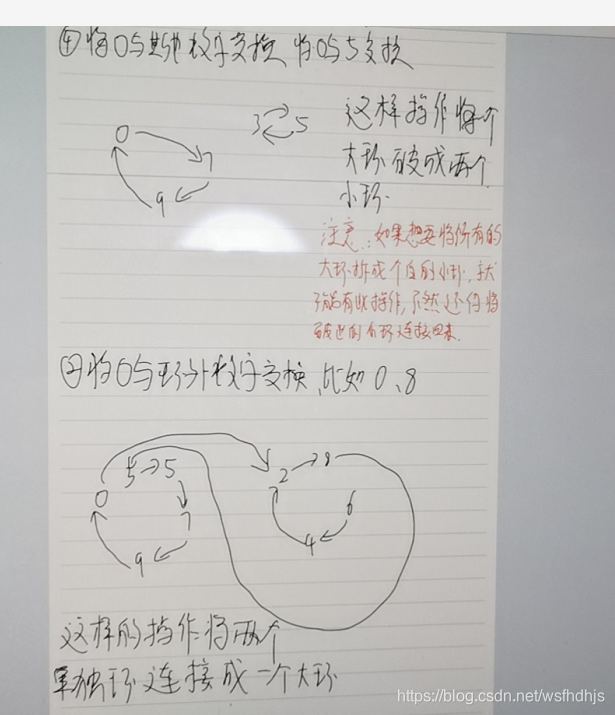 ④将0与环内数字交换 将0与5交换
0
7
9
3 5
这样操作将个
大环破成两个
小环
注意:如果想要将所有的
大环拆成个自的小环,就
不能有此操作,不然还得将
破出的小环连接回来.
②将0与环外数字交换、比如0、8
0 5 7 9
2 8 6 4
这样的操作将两个
单独环连接成一个大环
https://blog.csdn.net/wsfhdhjs